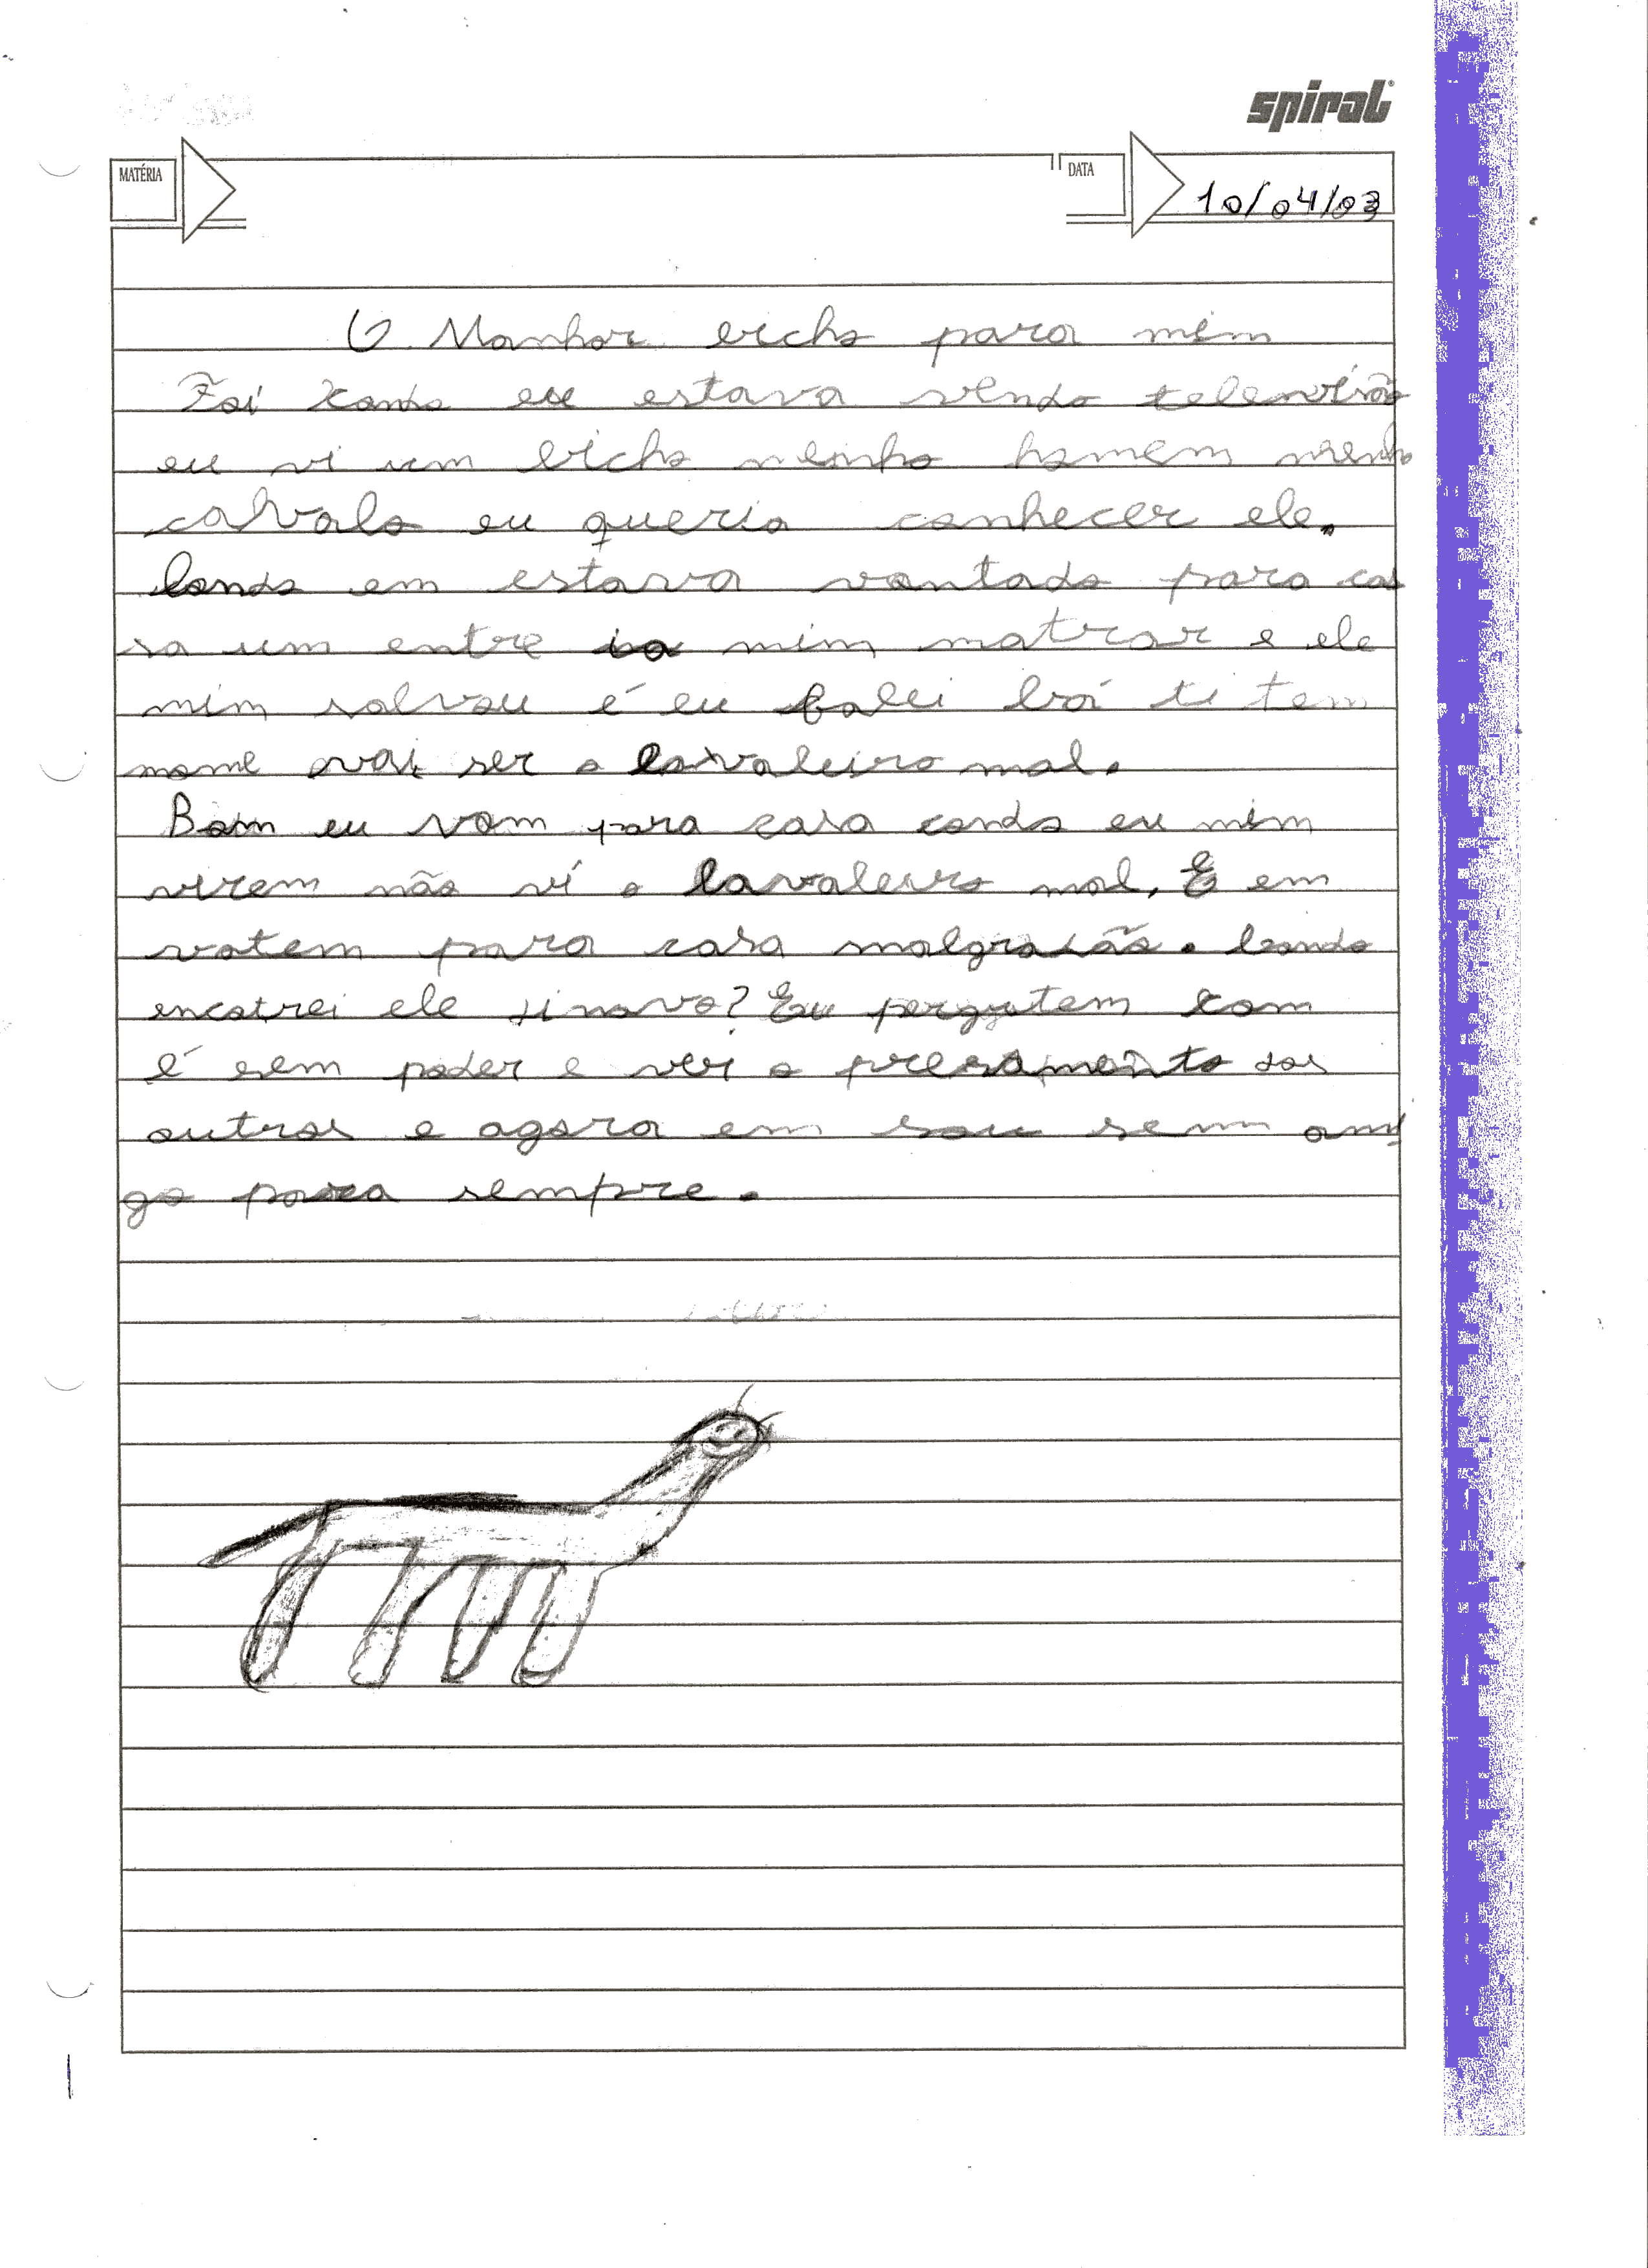 spiral
MATÉRIA
DATA
10/04/03
O Manhor bicho para mim
Foi conda eu estava vendo televisão
eu vi um bicho meinho homem meinho
cavalo eu queria conhecer ele.
Conda em estava vontado para ca
sa um entre ia mim matrar e ele
mim salvou é eu falei boi ti tem
nome vai ser o Cavaleiro mal.
Bom eu vom para casa conda eu mim
virem não ví o Cavaleiro mal, E em
votem para casa Conda
encotrei ele dinovo? Eu pergutem com
é sem poder e ver o presamento dos
outros e agora em sou sem ami
go para sempre.